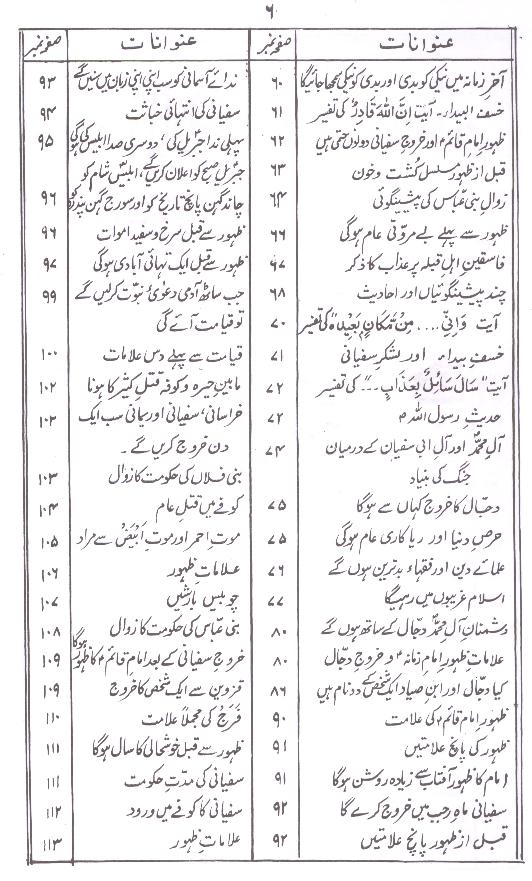 ۶
عنوانات صفحہ نمبر
آخر زمانہ میں نیکی کو بدی اور بدی کو نیکی سمجھا جائیگا ۶۰
خسف البیداء۔ آیت اِنَّ اللہَ قَادِرٌ کی تفسیر ۶۱
ظہور امام قائمؑ اور خروج سفیانی دونوں حتمی ہیں ۶۲
قبل از ظہور مسلسل کُشت و خون ۶۳
زوال بنی عباس کی پیشینگوئی ۶۴
ظہور سے پہلے بے مروّتی عام ہوگی ۶۶
فاسقین اہل قبلہ پر عذاب کا ذکر ۶۷
چند پیشینگوئیاں اور احادیث ۶۸
آیت وَاَنّٰی .... مِنْ مَّکَانٍ بَعِیْدٍ" کی تفسیر ۷۰
خسف بیداء اور لشکر سفیانی ۷۱
آیت "سَاَلَ سَائِلٌ بِعَذَابٍ ..." کی تفسیر ۷۲
حدیث رسول اللہ ؐ ۷۲
آل محمدؐ اور آل ابی سفیان کے درمیان ۷۴
جنگ کی بنیاد
دجّال کا خروج کہاں سے ہوگا ۷۵
حرص دنیا اور ریاکاری عام ہوگی ۷۵
علمائے دین اور فقہاء بدترین ہوں گے ۷۶
اسلام غریبوں میں رہیگا ۷۷
دشمنان آل محمدؐ دجّال کے ساتھ ہوں گے ۸۰
علامات ظہور امام زمانہؑ و خروج دجّال ۸۰
کیا دجّال اور ابن صیاد ایک شخص کے دو نام ہیں ۸۶
ظہور امام قائمؑ کی علامت ۹۰
ظہور کی پانچ علامتیں ۹۱
امام کا ظہور آفتاب سے زیادہ روشن ہوگا ۹۱
سفیانی ماہ رجب میں خروج کرے گا ۹۲
قبل از ظہور پانچ علامتیں ۹۲
عنوانات صفحہ نمبر
ندائے آسمانی کو سب اپنی اپنی زبان میں سنیں گے ۹۳
سفیانی کی انتہائی خباثت ۹۴
پہلی ندا جبرئیل کی، دوسری صدا ابلیس کی ہوگی ۹۵
جبرئیل صبح کو اعلان کریں گے، ابلیس شام کو
چاند گہن پانچ تاریخ کو اور سورج گہن پندرہ کو ۹۶
ظہور سے قبل سرخ و سفید اموات ۹۶
ظہور سے قبل ایک تہائی آبادی ہوگی ۹۷
جب ساٹھ آدمی دعوئ نبوّت کر لیں گے ۹۹
تو قیامت آئے گی
قیامت سے پہلے دس علامات ۱۰۰
مابین حیرہ و کوفہ قتل کثیر کا ہونا ۱۰۲
خراسانی، سفیانی اور یمانی سب ایک ۱۰۲
دن خروج کریں گے۔
بنی فلاں کی حکومت کا زوال ۱۰۳
کوفے میں قتل عام ۱۰۴
موت احمر اور موت اَبْیَضْ سے مراد ۱۰۵
علامات ظہور ۱۰۶
چوبیس بارشیں ۱۰۷
بنی عباس کی حکومت کا زوال ۱۰۸
خروج سفیانی کے بعد امام قائمؑ کا ظہور ہوگا ۱۰۹
قزوین سے ایک شخص کا خروج ۱۰۹
فَرَجْ کی مجملاً علامت ۱۱۰
ظہور سے قبل خوشحالی کا سال ہوگا ۱۱۱
سفیانی کی مدّت حکومت ۱۱۱
سفیانی کا کوفے میں ورود ۱۱۲
علامات ظہور ۱۱۳